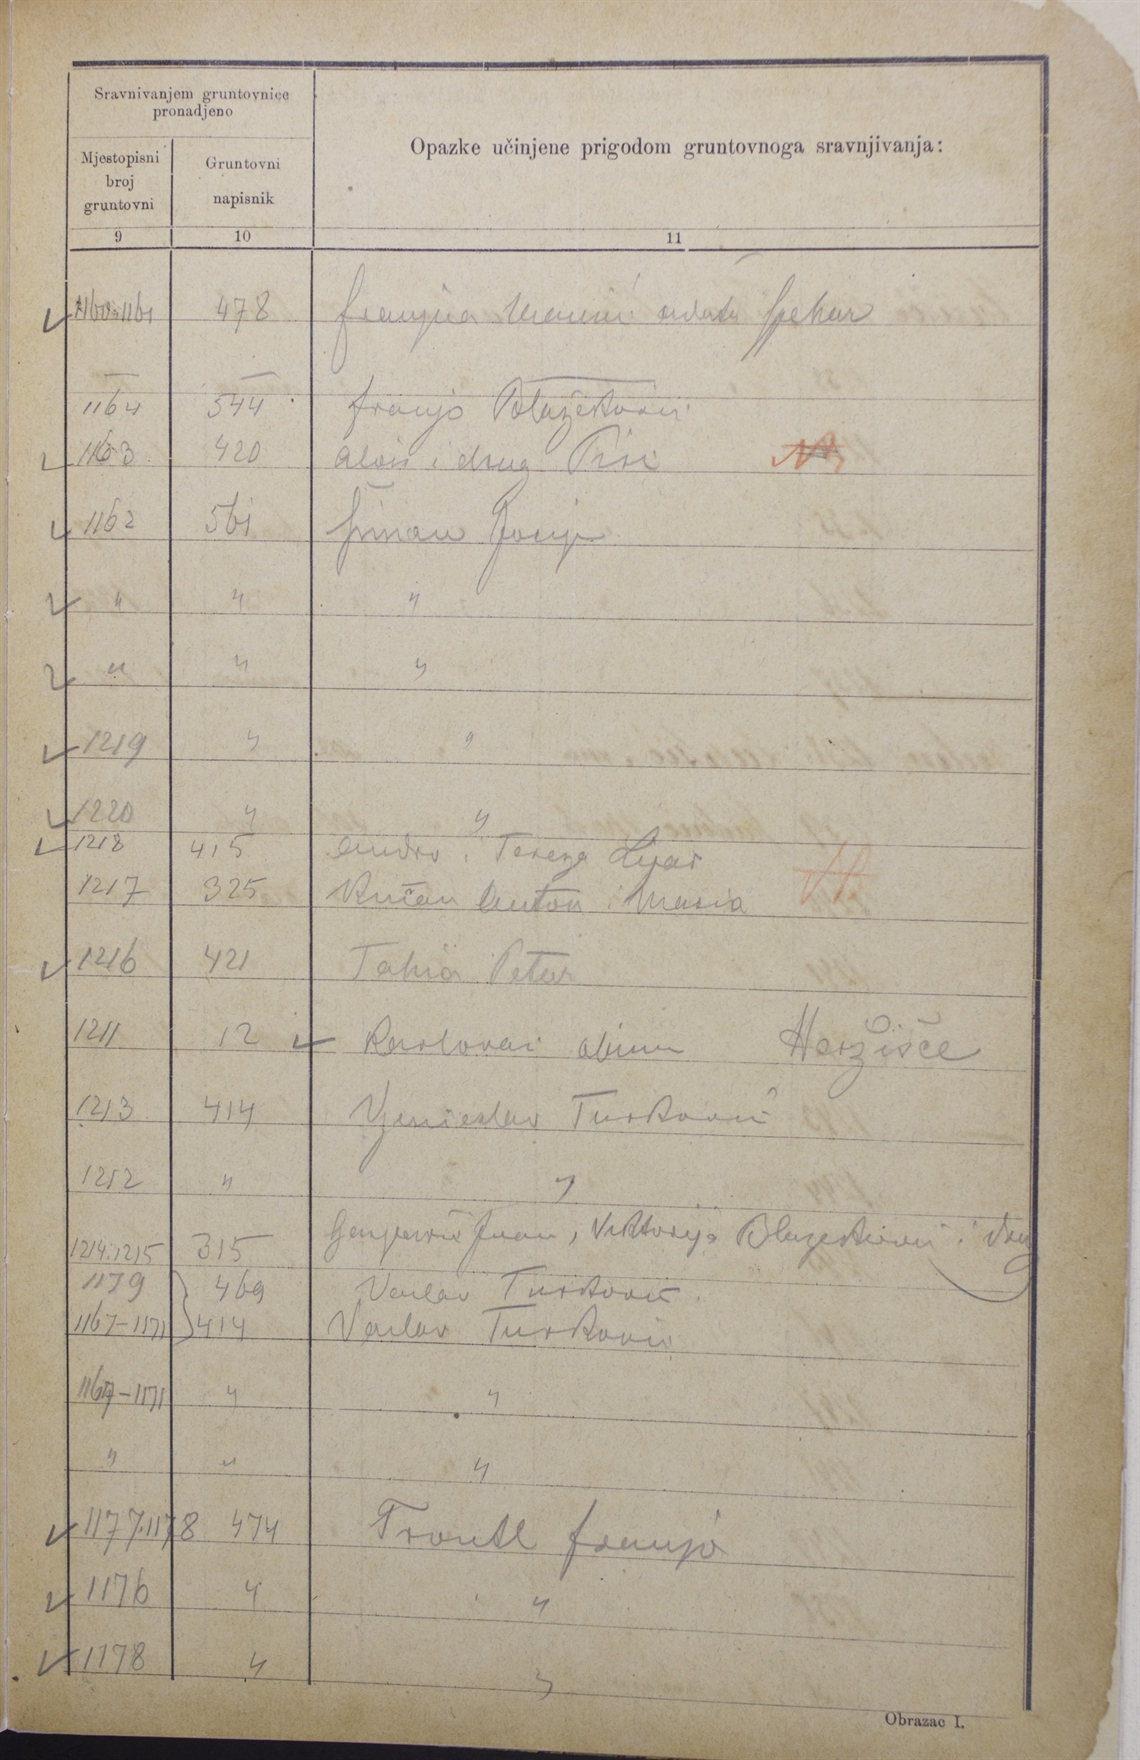 Sravnivanjem gruntovnice
pronadjeno
Mjestopisni
broj
gruntovni
Gruntovni
napisnik
Opazke učinjene prigodom gruntovnoga sravnjivanja:
9 10 11
1160-1161 478 udata Spehar
1164 544 franjo Blažeković
1163 420 Alois i drug
1162 561 Josip
" " "
" " "
1219 " "
1220 " "
1218 415 Andro i Tereza
1217 325 Anton i Maria
1216 421 Petar
1211 12 Karlovac Heržišće
1213 414 Vjenceslav Turković
1212 " "
1214.1215 315 Gašparić Juan, Viktorija Blažeković i drug
1179 469 Vaclav Turković
1167-1171 414 Vaclav Turković
1167-1171 " "
" " "
1177.1178 474 Trontl franjo
1176 " "
1178 " "
Obrazac I.